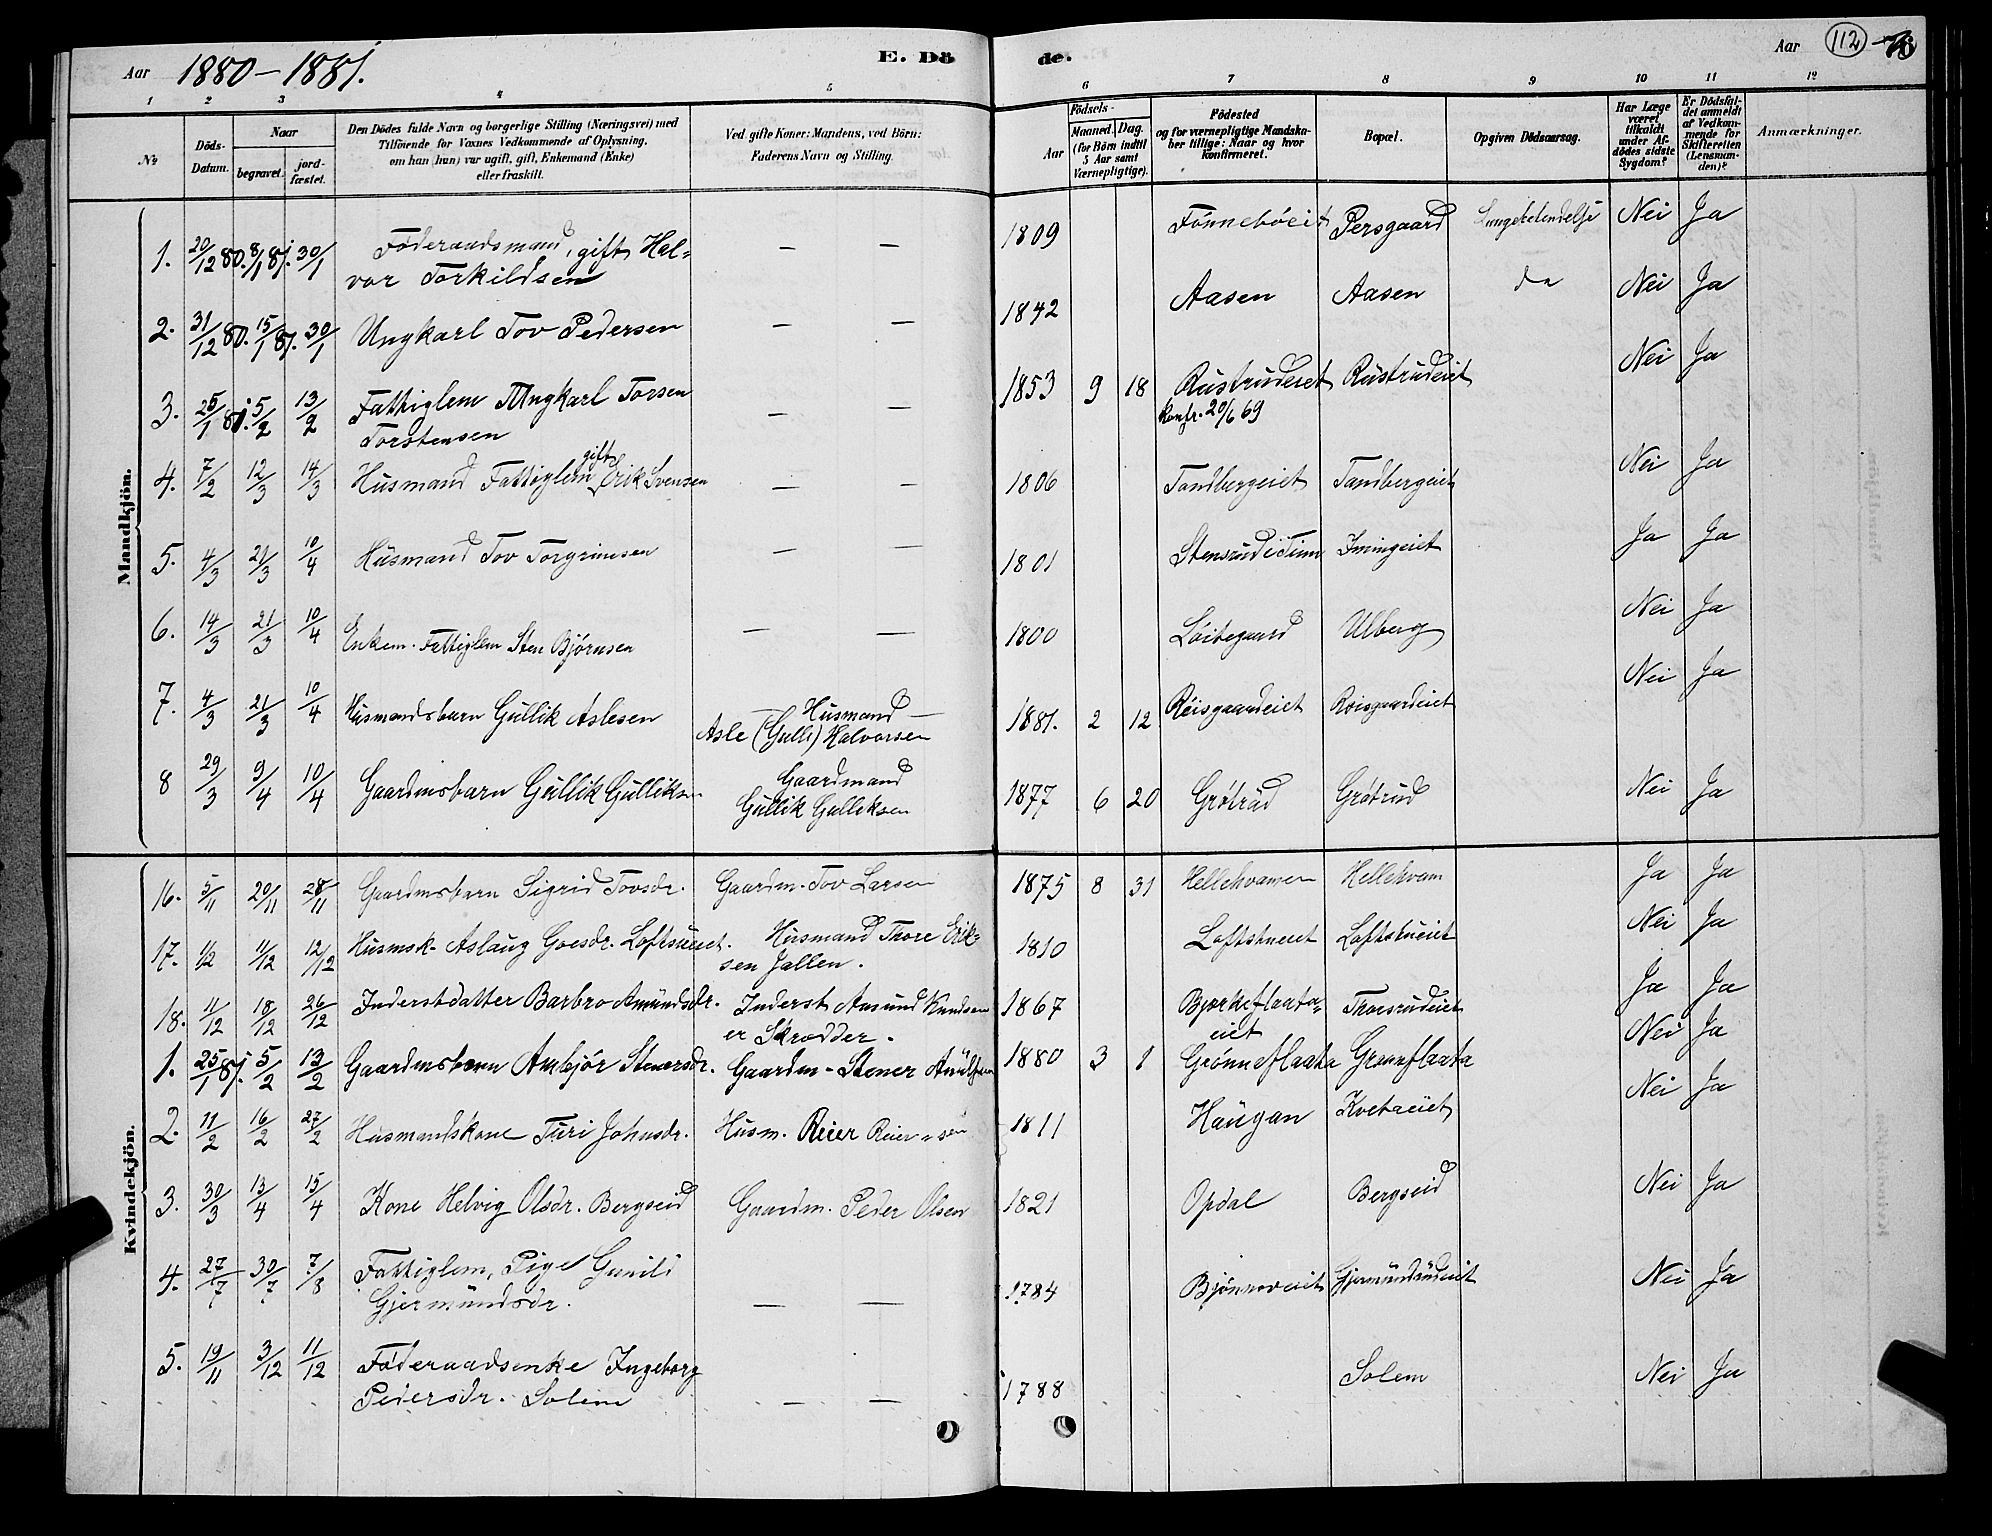 Aar 1880-1881. E. Dö de. Aar 112
1 2 3 4 5 6 7 8 9 10 11 12
№
Döds-Datum.
Naar
begravet. jordfæstet.
Den Dödes fulde Navn og borgerlige Stilling (Næringsvei) med
Tilföiende for Voxnes Vedkommende af Oplysning,
om han (hun) var ugift, gift, Enkemand (Enke)
eller fraskilt.
Ved gifte Koner: Mandens, ved Börn:
Faderens Navn og Stilling.
Födsels-
Aar Maaned. Dag.
(for Börn indtil
5 Aar samt
Værnepligtige).
Födested
og for værnepligtige Mandska-
ber tillige: Naar og hvor
konfirmeret.
Bopæl.
Opgiven Dödsaarsag.
Har Læge
været
tilkaldt
under Af-
dödes sidste
Sygdom?
Er Dödsfal-
det anmeldt
af Vedkom-
mende for
Skifteretten
(Lensman-
den)?
Anmærkninger.
Mandkjön.
1. 20/12 80. 8/1 81. 30/1 Føderaadsmand, gift Hal-
vor Torkildsen — — 1809 Fønnebøeit Persgaard Lungebetendelse Nei Ja
2. 31/12 80. 15/1 81. 30/1 Ungkarl Tov Pedersen — — 1842 Aasen Aasen do Nei Ja
3. 25/1 81. 5/2 13/2 Fattiglem Ungkarl Torsen
Torstensen — — 1853 9 18 Rustrudeiet Rustrudeiet Nei Ja
konfr. 20/6 69
4. 7/2 12/3 14/3 Husmand Fattiglem gift Erik Svensen — — 1806 Tandbergeiet Tandbergeiet Nei Ja
5. 4/3 21/3 10/4 Husmand Tov Torgrimsen — — 1801 Stensrud i Tinn Imingeiet Ja Ja
6. 14/3 21/3 10/4 Enkem. Fattiglem Sten Bjørnsen — — 1800 Løitegaard Ulberg Nei Ja
7. 4/3 21/3 10/4 Husmandsbarn Gullik Aslesen — Husmand —
Asle (Gulli) Halvorsen 1881. 2 12 Roisgaardeiet Roisgaardeiet Nei Ja
8 29/3 9/4 10/4 Gaardmsbarn Gullik Gulliksen Gaardmand
Gullik Gulliksen 1877 6 20 Grøtrud Grøtrud Nei Ja
Kvindekjön.
16. 5/11 20/11 28/11 Gaardmsbarn Sigrid Tovsdr. Gaardm. Tov Larsen 1875 8 31 Hellekvamen Hellekvam Ja Ja
17. 1/12 11/12 12/12 Husmsk. Aslaug Goesdr. Loftsueiet. Husmand Thore Erik-
sen Jallen. 1810 Loftstueiet Loftstueiet Nei Ja
18. 11/12 18/12 26/12 Inderstdatter Barbro Amundsdr. Inderst Amund Knudsen
er Skrædder. 1867 Bjørkeflaata-
eiet Thoesrudeiet Ja Ja
1. 25/1 81. 5/2 13/2 Gaardmsbarn Ambjør Stenersdr. Gaardm. Stener 1880 3 1 Grønneflaata Grønneflaata Nei Ja
2. 11/2 16/2 27/2 Husmandskone Turi Johnsdr. Husm. Reier Reiersen 1811 Haugan Kvetaeiet Nei Ja
3. 30/3 13/4 15/4 Kone Helvig Olsdr. Bergseid Gaardm. Peder Olsen 1821 Opdal Bergseid Nei Ja
4. 27/7 30/7 7/8 Fattiglem, Pige Gunild
Gjermundsdr. — — 1784 Bjønnoveiet Gjermundrudeiet Nei Ja
5. 19/11 3/12 11/12 Føderaadsenke Ingeborg
Pedersdr. Solem — — 1788 Solem Nei Ja